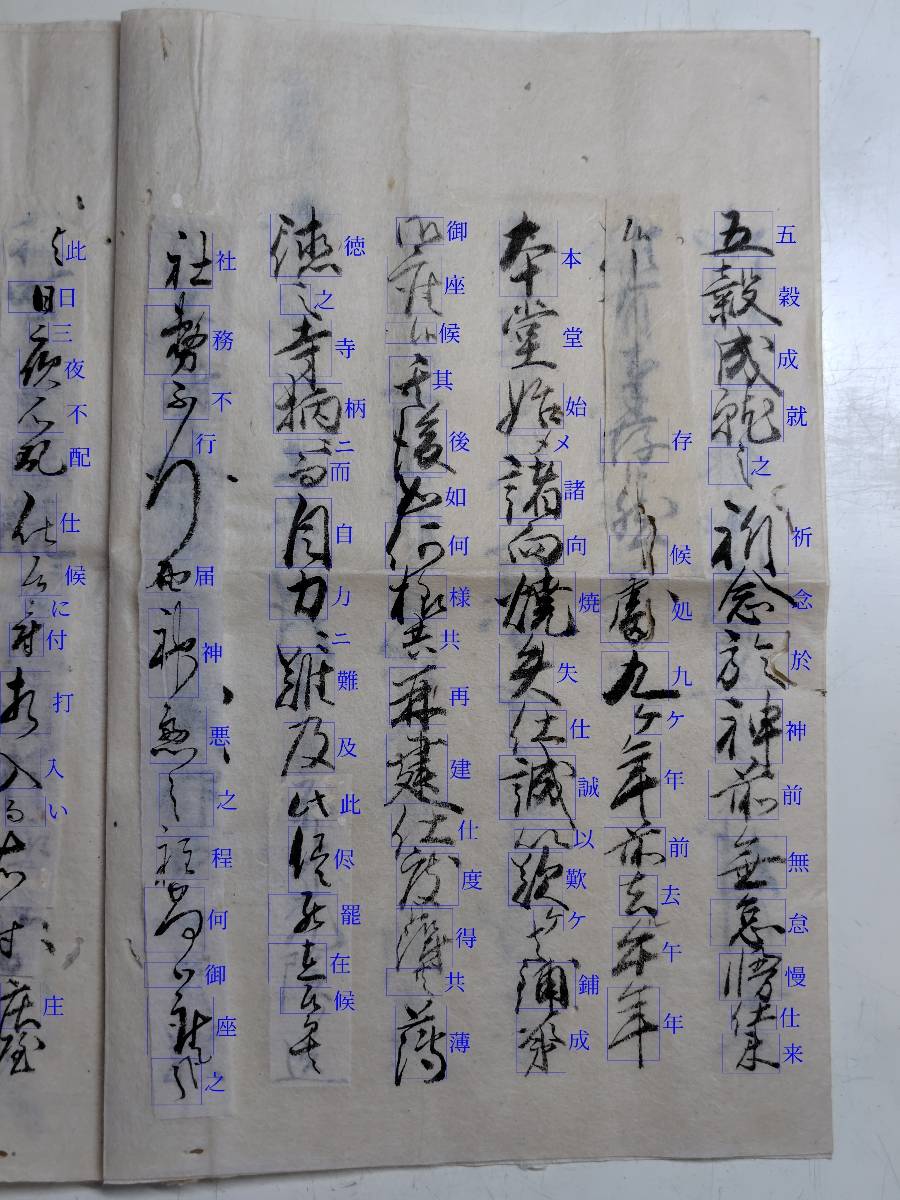 五穀成就之祈念於神前無怠慢仕来
存候処九ケ年前去午年
本堂始メ諸向焼失仕誠以歎ケ鋪成
御座候其後如何様共再建仕度得共薄
徳之寺柄ニ而自力ニ難及此侭罷在候
社務不行届神悪之程何御座之
此日三夜不配仕候に付打入い庄